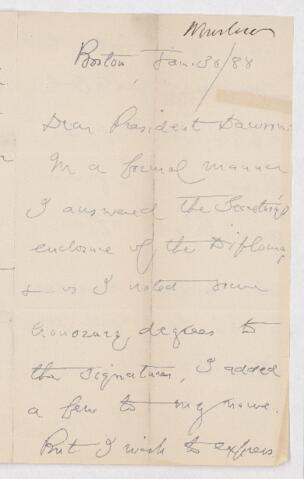 Boston Jan. 30/88
Dear President Dawson
In a formal manner
I answered the Secretary's
enclosure of the Diploma,
& as I noted some
honorary degrees to
the signatures, I added
a few to my name.
But I wish to express